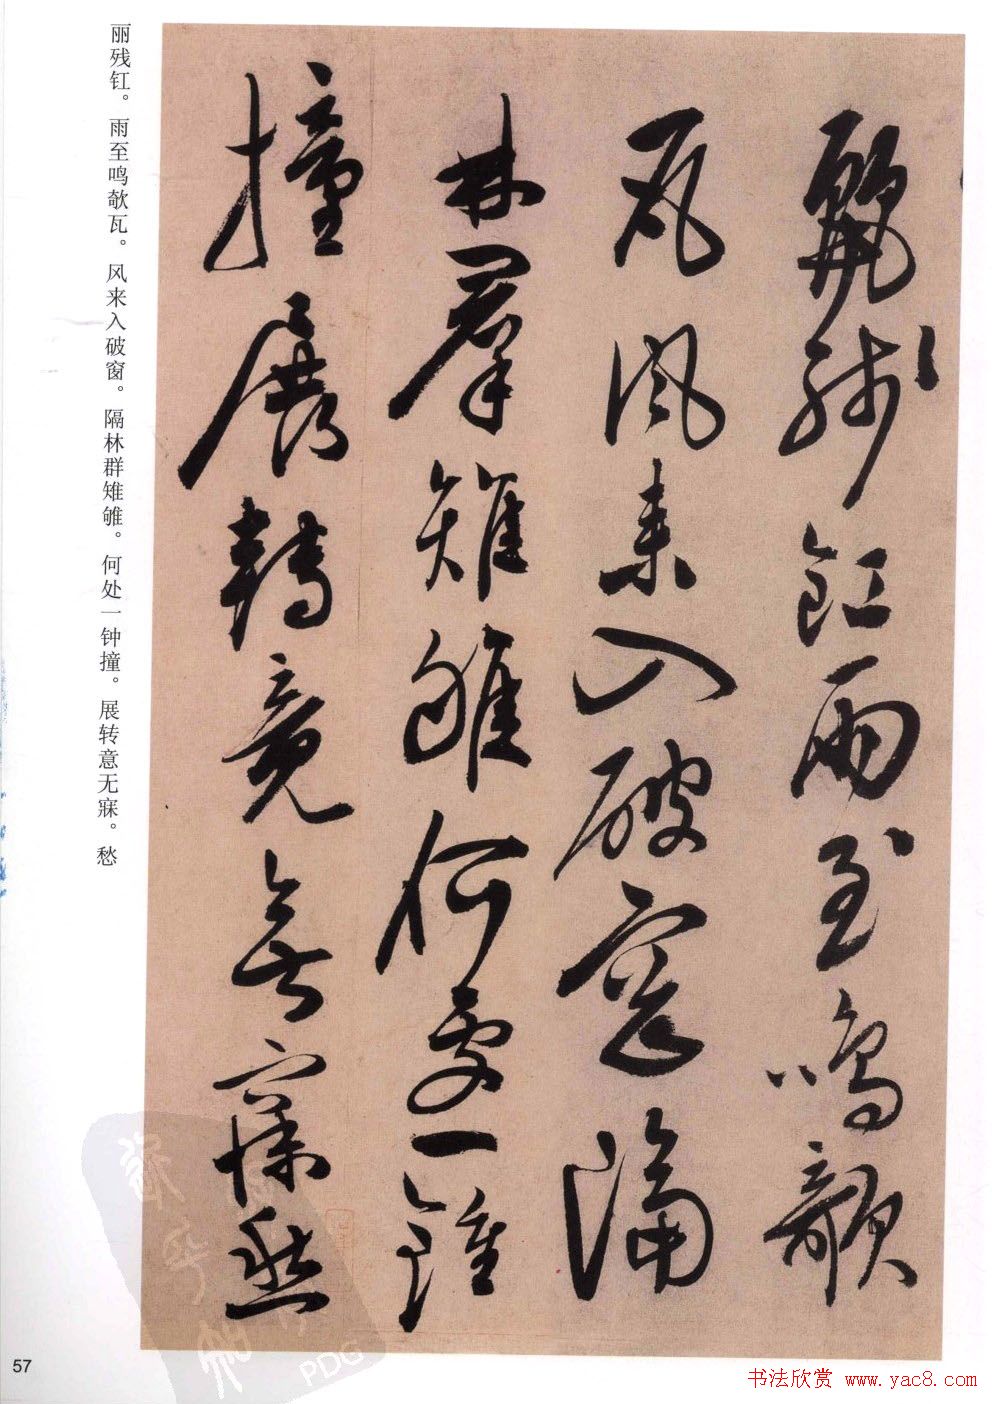 麗殘釭雨至鳴欹
瓦風來入破窓隔
林羣雉雊何處一鐘
撞展轉竟無寐愁
丽残釭。雨至鸣欹瓦。风来入破窗。隔林群雉雊。何处一钟撞。展转意无寐。愁
57
PDG
书法欣赏 www.yac8.com